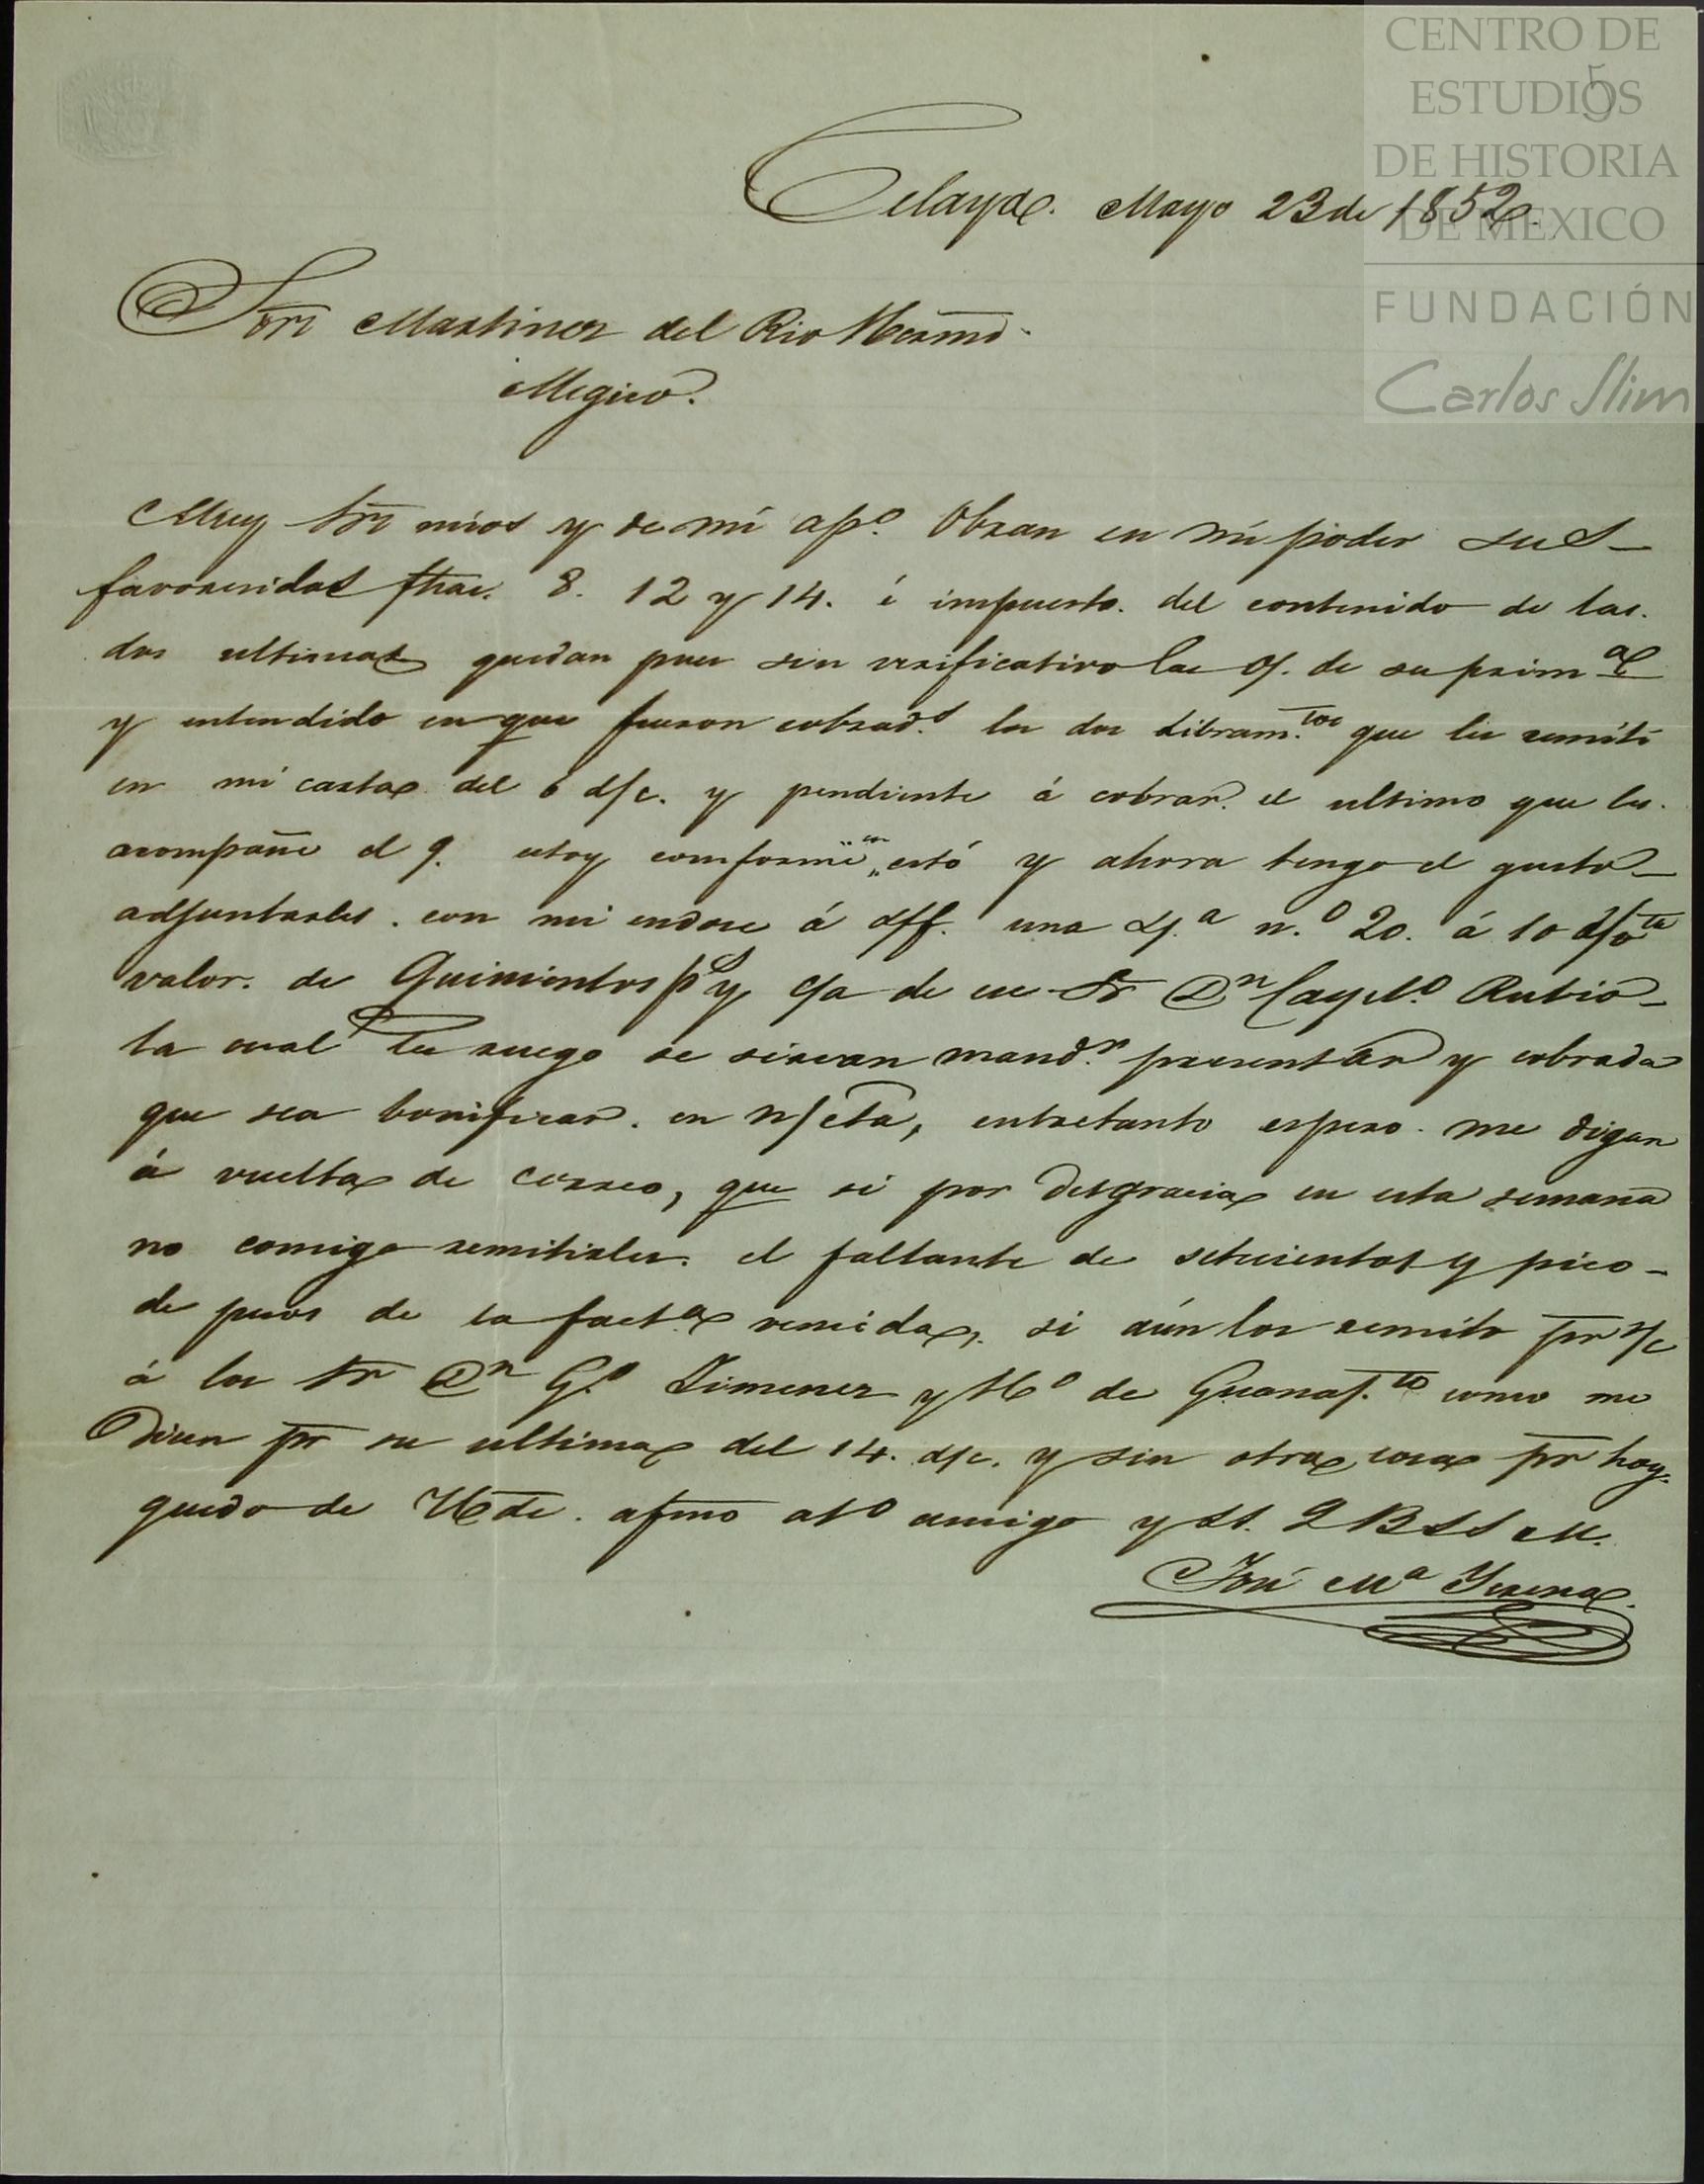 CENTRO DE
ESTUDIOS
DE HISTORIA
DE MEXICO
FUNDACIÓN
Carlos Slim
5
Celaya. Mayo 23 de 1852.
Sores Martinez del Rio Hermos.
Megico.
Muy Sres mios y de mi apo. Obran en mi poder sus
favorecidas fhas. 8. 12 y 14. é impuesto. del contenido de las.
dos ultimas quedan pues sin verificativo las de su prim.a
y entendido en que fueron cobrads. los dos Libram.tos que les remití
en mi carta del 6 d/c. y pendiente á cobrar. el ultimo que les.
acompañe el 9. estoy conforme „en esto y ahora tengo el gusto
adjuntarles. con mi endose á una L/.a n.o 20. á 10 d/
valor. de Quinientos ps y c/a de ese Sr Dn Cayet.o Rubio
la cual les ruego se sirvan mand.r presentar y cobrada
que sea bonificar. en n/cta, entretanto espero. me digan
á vuelta de correo, que si por desgracia en esta semana
no consigo remitirles. el faltante de setecientos y pico
de pesos de la fact.a vencida, si aún los remito pr s/c
á los Sres Dn G.o Jimenez y Ho de Guanaj.to como me
dicen pr su ultima del 14. d/c. y sin otra cosa pr hoy.
quedo de Ustedes. afmo ato amigo y SS. Q B SS M.
José Ma Yrena.